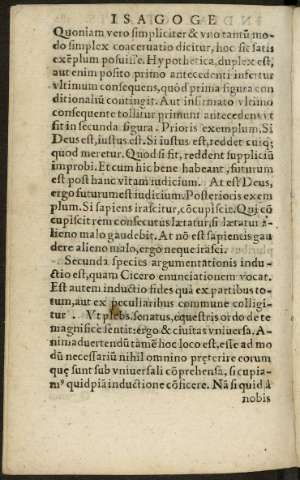 ISAGOGE
Quoniam vero simpliciter & vno tantũ mo-
do simplex coaceruatio dicitur, hoc sic satis
exẽplum posuisse. Hypothetica, duplex est,
aut enim posito primo antecedenti infertur
vltimum consequens, quod prima figura con
ditionaliũ contingit. Aut infirmato vltimo
consequente tollitur primum antecedens vt
fit in secunda figura. Prioris exemplum. Si
Deus est, iustus est. Si iustus est, reddet cuiq;
quod meretur. Quod si fit, reddent suppliciũ
improbi. Et cum hic bene habeant, futurum
est post hanc vitam iudicium. At est Deus,
ergo futurum est iudicium. Posterioris exem
plum. Si sapiens irascitur, cõcupiscit. Qui cõ
cupiscit rem consecutus lætatur, si lætatur a-
lieno malo gaudebit. At nõ est sapientis gau
dere alieno malo, ergo neque irasci.
Secunda species argumentationis indu-
ctio est, quam Cicero enunciationem vocat.
Est autem inductio fides quæ ex partibus to-
tum, aut ex peculiaribus commune colligi-
tur. Vt plebs, senatus, equestris ordo de te
magnifice sentit: ergo & ciuitas vniuersa. A-
nimaduertendũ tamẽ hoc loco est, esse ad mo
dũ necessariũ nihil omnino preterire eorum
quę sunt sub vniuersali cõprehensa, si cupia-
mꝰ quidpiã inductione cõficere. Nã si quid à
nobis